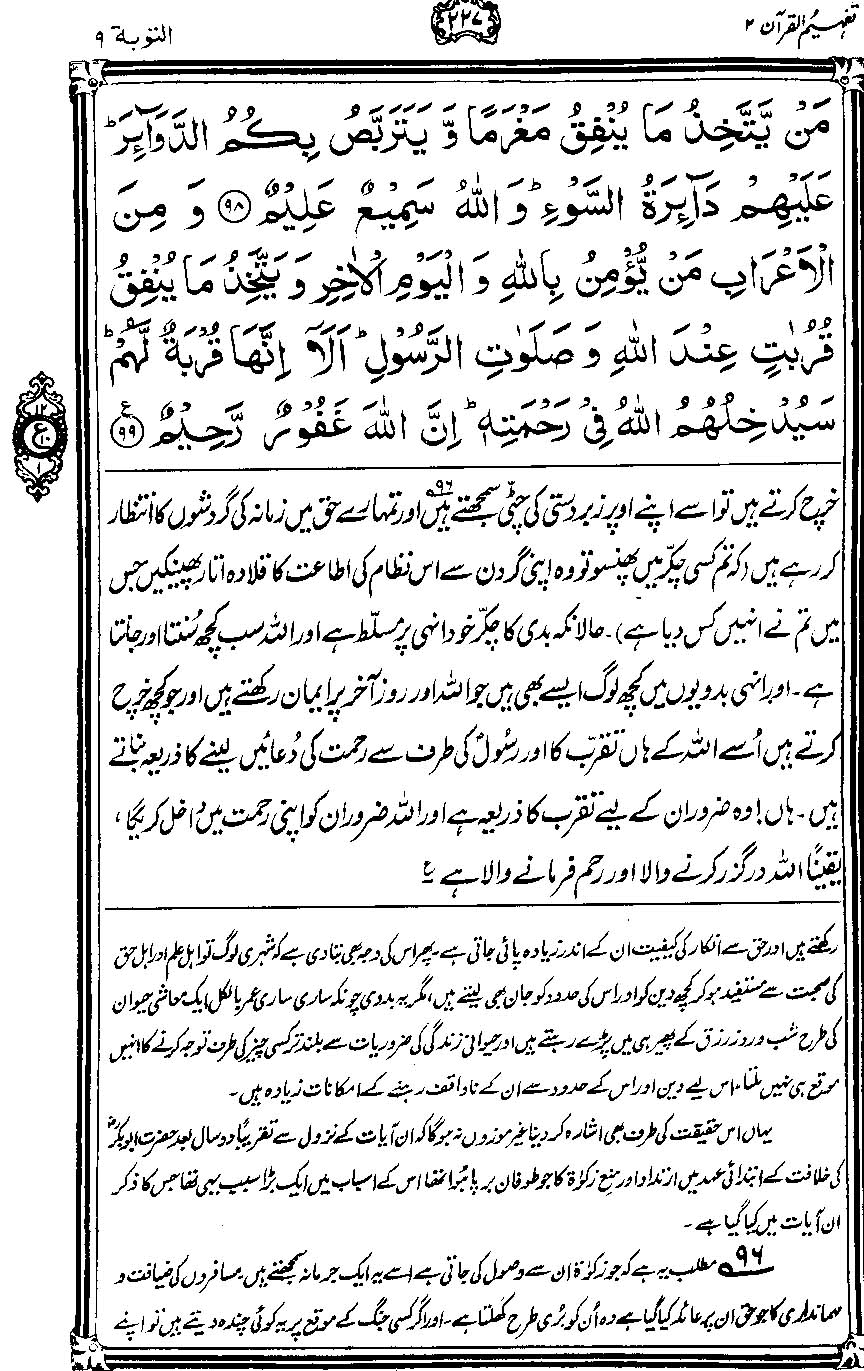 تفہیم القرآن ۲
۲۲۷
التوبۃ ۹
مَنْ يَّتَّخِذُ مَا يُنْفِقُ مَغْرَمًا وَّ يَتَرَبَّصُ بِكُمُ الدَّوَآئِرَ ؕ
عَلَيْهِمْ دَآئِرَةُ السَّوْءِ ؕ وَ اللّٰهُ سَمِيْعٌ عَلِيْمٌ ﴿۹۸﴾ وَ مِنَ
الْاَعْرَابِ مَنْ يُّؤْمِنُ بِاللّٰهِ وَ الْيَوْمِ الْاٰخِرِ وَ يَتَّخِذُ مَا يُنْفِقُ
قُرُبٰتٍ عِنْدَ اللّٰهِ وَ صَلَوٰتِ الرَّسُوْلِ ؕ اَلَآ اِنَّهَا قُرْبَةٌ لَّهُمْ ؕ
سَيُدْخِلُهُمُ اللّٰهُ فِيْ رَحْمَتِهٖ ؕ اِنَّ اللّٰهَ غَفُوْرٌ رَّحِيْمٌ ﴿۹۹﴾ ع
۱۲
ع
۱۰
۱
خرچ کرتے ہیں تو اسے اپنے اوپر زبردستی کی چٹّی سمجھتے ہیں۹۶ اور تمہارے حق میں زمانہ کی گردشوں کا انتظار
کر رہے ہیں (کہ تم کسی چکّر میں پھنسو تو وہ اپنی گردن سے اس نظام کی اطاعت کا قلادہ اتار پھینکیں جس
میں تم نے انہیں کس دیا ہے)۔ حالانکہ بدی کا چکّر خود انہی پر مسلّط ہے اور اللہ سب کچھ سُنتا اور جانتا
ہے۔ اور انہی بدویوں میں کچھ لوگ ایسے بھی ہیں جو اللہ اور روز آخر پر ایمان رکھتے ہیں اور جو کچھ خرچ
کرتے ہیں اُسے اللہ کے ہاں تقرّب کا اور رسُولؐ کی طرف سے رحمت کی دُعائیں لینے کا ذریعہ بناتے
ہیں۔ ہاں! وہ ضرور ان کے لیے تقرب کا ذریعہ ہے اور اللہ ضرور ان کو اپنی رحمت میں داخل کریگا،
یقیناً اللہ درگزر کرنے والا اور رحم فرمانے والا ہے ع
رکھتے ہیں اور حق سے انکار کی کیفیت ان کے اندر زیادہ پائی جاتی ہے۔ پھر اس کی وجہ بھی بتا دی ہے کہ شہری لوگ تو اہل علم اور اہل حق
کی صحبت سے مستفید ہو کر کچھ دین کو اور اس کی حدود کو جان بھی لیتے ہیں، مگر یہ بدوی چونکہ ساری ساری عمر بالکل ایک معاشی حیوان
کی طرح شب و روز رزق کے پھیر ہی میں پڑے رہتے ہیں اور حیوانی زندگی کی ضروریات سے بلند تر کسی چیز کی طرف توجہ کرنے کا انہیں
موقع ہی نہیں ملتا، اس لیے دین اور اس کے حدود سے ان کے ناواقف رہنے کے امکانات زیادہ ہیں۔
یہاں اس حقیقت کی طرف بھی اشارہ کر دینا غیر موزوں نہ ہوگا کہ ان آیات کے نزول سے تقریباً دو سال بعد حضرت ابوبکرؓ
کی خلافت کے ابتدائی عہد میں ارتداد اور منع زکوٰۃ کا جو طوفان برپا ہُوا تھا اس کے اسباب میں ایک بڑا سبب یہی تھا جس کا ذکر
ان آیات میں کیا گیا ہے۔
۹۶ مطلب یہ ہے کہ جو زکوٰۃ ان سے وصول کی جاتی ہے اسے یہ ایک جرمانہ سمجھتے ہیں۔ مسافروں کی ضیافت و
مہمانداری کا جو حق ان پر عائد کیا گیا ہے وہ اُن کو بُری طرح کھلتا ہے۔ اور اگر کسی جنگ کے موقع پر یہ کوئی چندہ دیتے ہیں تو اپنے